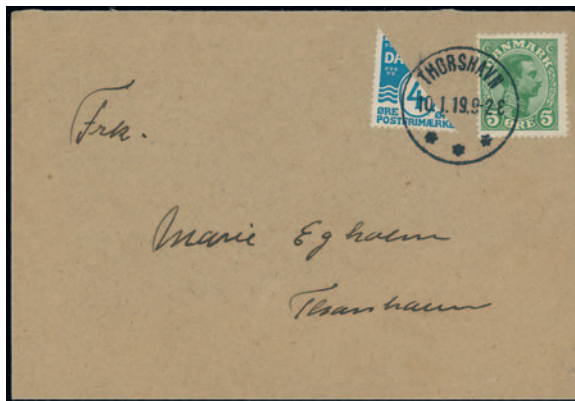 DA
4
ØRE
POSTFRIMÆRKE
THORSHAVN
10.1.19.9-2E
DANMARK
5 ØRE 5
Frk.
Marie Egholm
Thorshavn